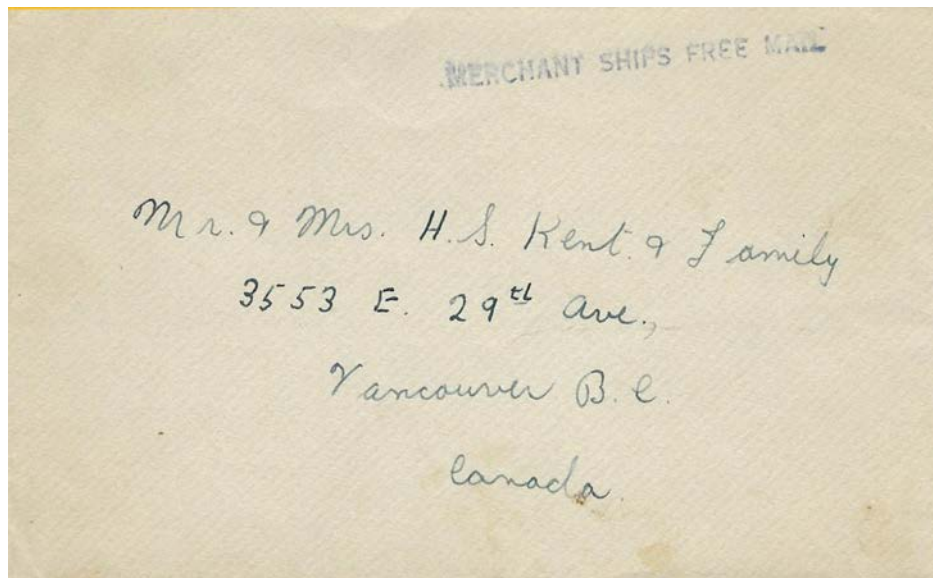 MERCHANT SHIPS FREE MAIL
Mr. & Mrs. H. S. Kent. & Family
3553 E. 29th Ave.,
Vancouver B. C.
Canada.